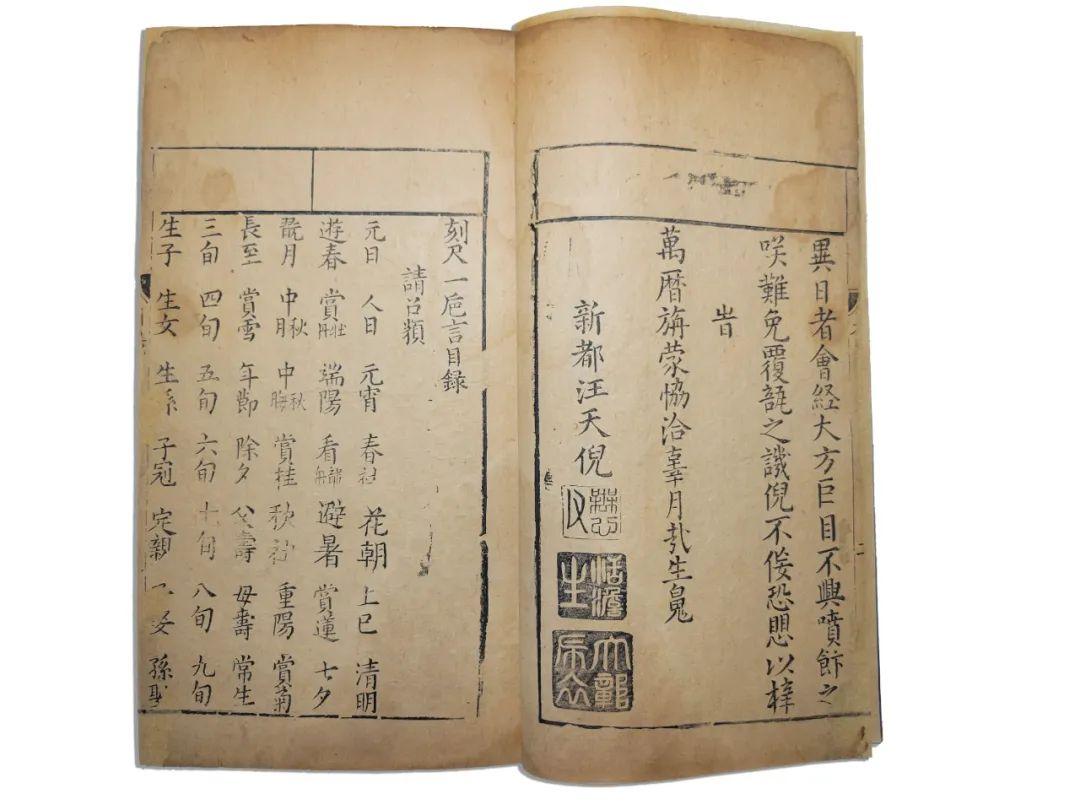 異日者會経大方巨目不興噴飰之
咲難免覆瓿之譏倪不佞恐愳以梓
旹
萬曆旃蒙恊洽辜月哉生
新都汪天倪
刻尺一巵言目録
請召類
元日 人日 元宵 春社 花朝 上巳 清明
遊春 賞牡丹 端陽 看龍舟 避暑 賞蓮 七夕
翫月 中秋月 中秋晦 賞桂 秋社 重陽 賞菊
長至 賞雪 年節 除夕 父壽 母壽 常生
三旬 四旬 五旬 六旬 七旬 八旬 九旬
生子 生女 生孫 子冠 定親 孫